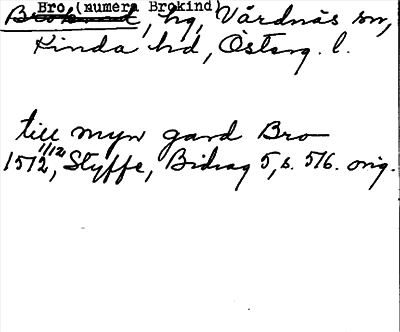 Bro (numera Brokind)
Brokind, hg, Vårdnäs sn,
Kinda hd, Österg. l.
till myn gard Bro
1/12
1512, Styffe, Bidrag 5, s. 516. orig.